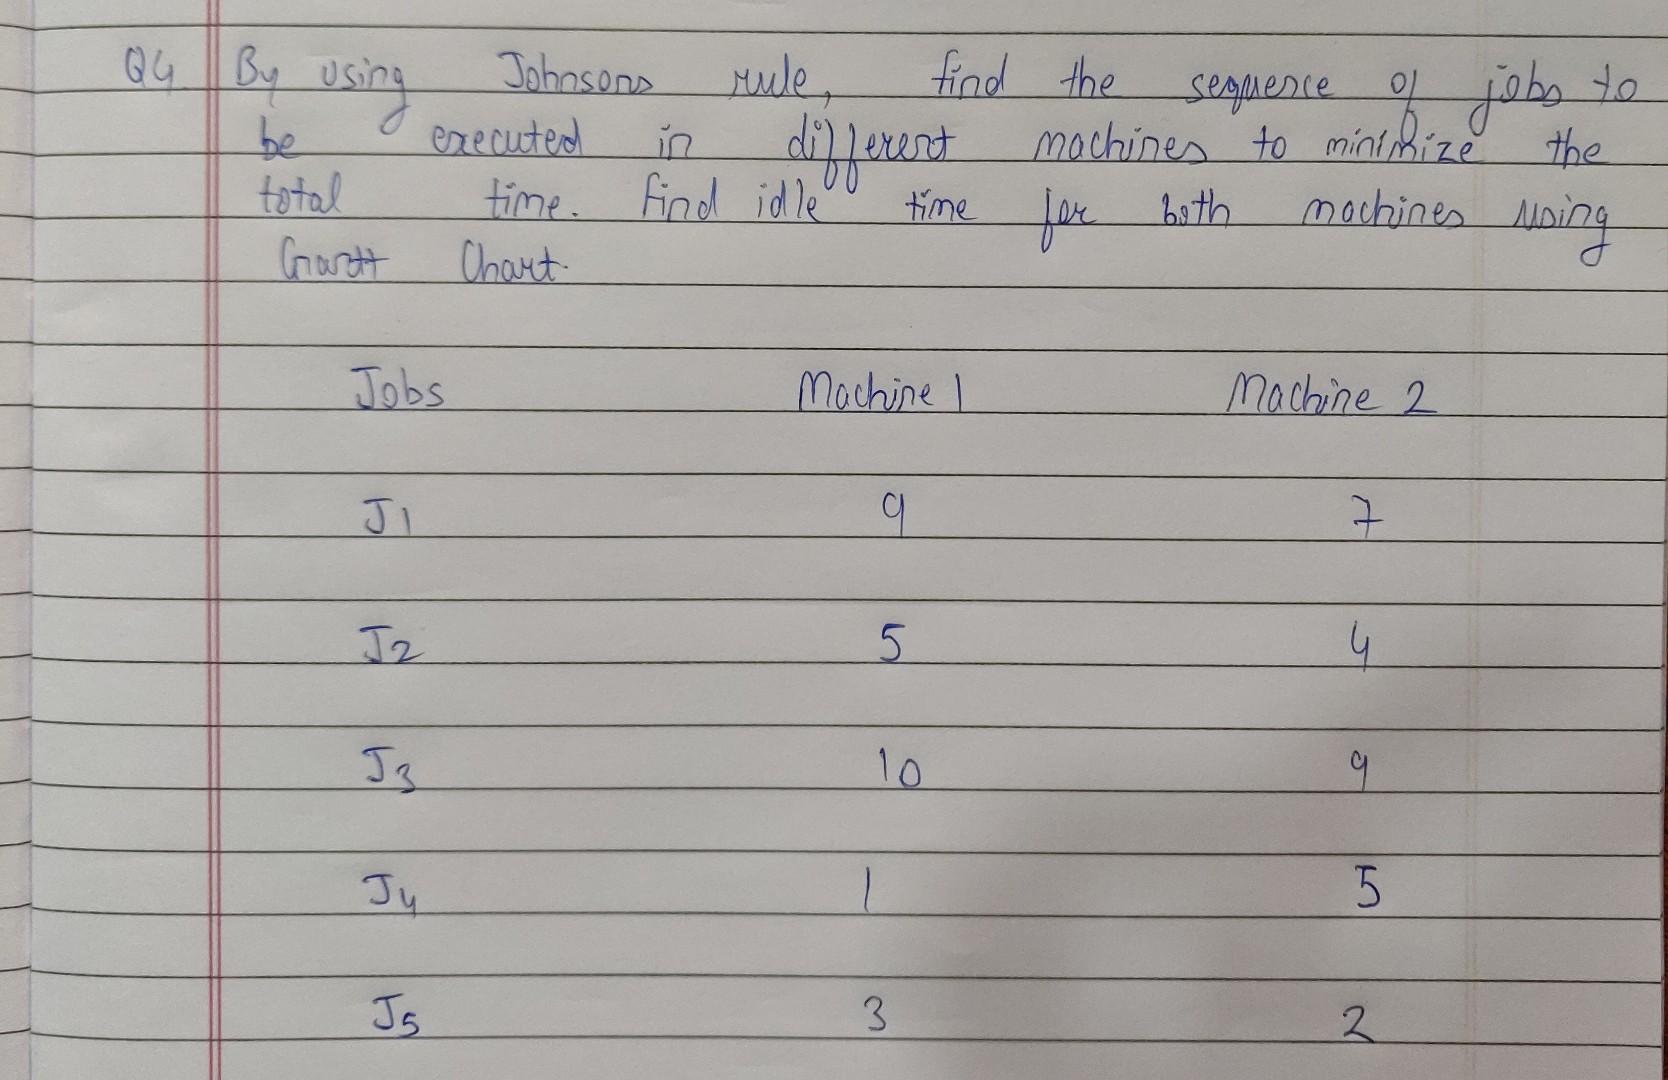 Q4 By using Johnsons rule, find the sequence of jobs to
be executed in different machines to minimize the
total time. Find idle time for both machines using
Gantt Chart.
Jobs Machine 1 Machine 2
J1 9 7
J2 5 4
J3 10 9
J4 1 5
J5 3 2